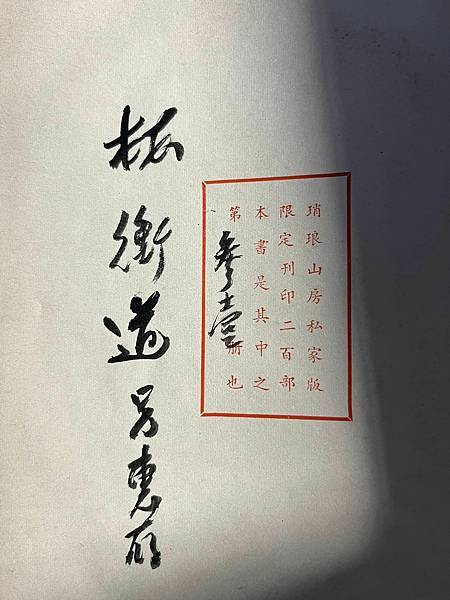 琑琅山房私家版
限定刊印二百部
本書是其中之
第參壹冊也
林衡道兄惠存